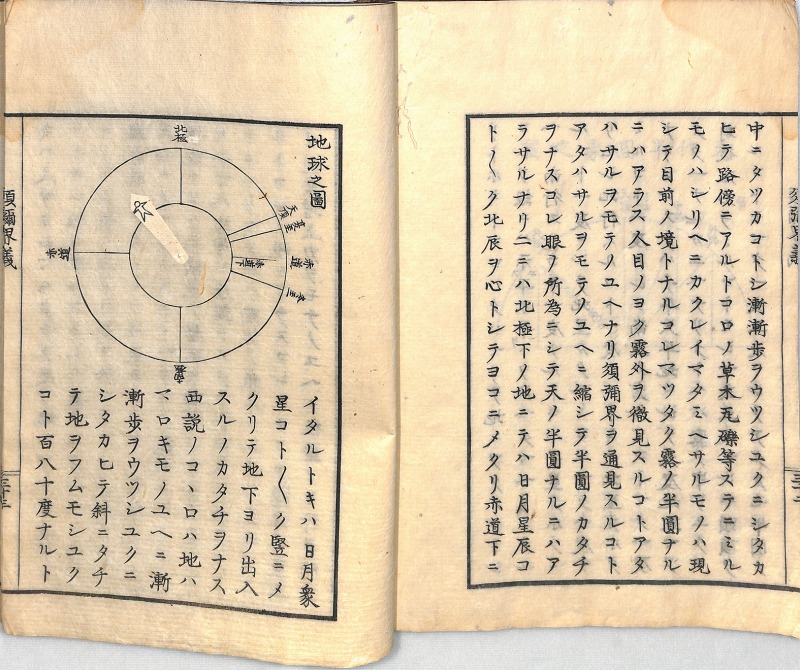 中ニタツカコトシ漸漸歩ヲウツシユクニシタカ
ヒテ路傍ニアルトコロノ草木瓦礫等ステニミル
モノハシリヘニカクレイマタミヘサルモノハ現
シテ目前ノ境トナルコレマツタク霧ノ半圓ナル
ニハアラス人目ノヨク霧外ヲ徹見スルコトアタ
ハサルヲモテノユヘナリ須彌界ヲ通見スルコト
アタハサルヲモテノユヘニ縮シテ半圓ノカタチ
ヲナスコレ眼ノ所為ニシテ天ノ半圓ナルニハア
ラサルナリ二ニハ北極下ノ地ニテハ日月星辰コ
ト〱ク北辰ヲ心トシテヨコニメクリ赤道下ニ
須彌界義
三十二
地球之圖
北極
天頂
夏至
赤道
赤道下
冬至
赤道
南極
イタルトキハ日月衆
星コト〱ク竪ニメ
クリテ地下ヨリ出入
スルノカタチヲナス
西説ノコヽロハ地ハ
マロキモノユヘニ漸
漸歩ヲウツシユクニ
シタカヒテ斜ニタチ
テ地ヲフムモシユク
コト百八十度ナルト
須彌界義
三十三